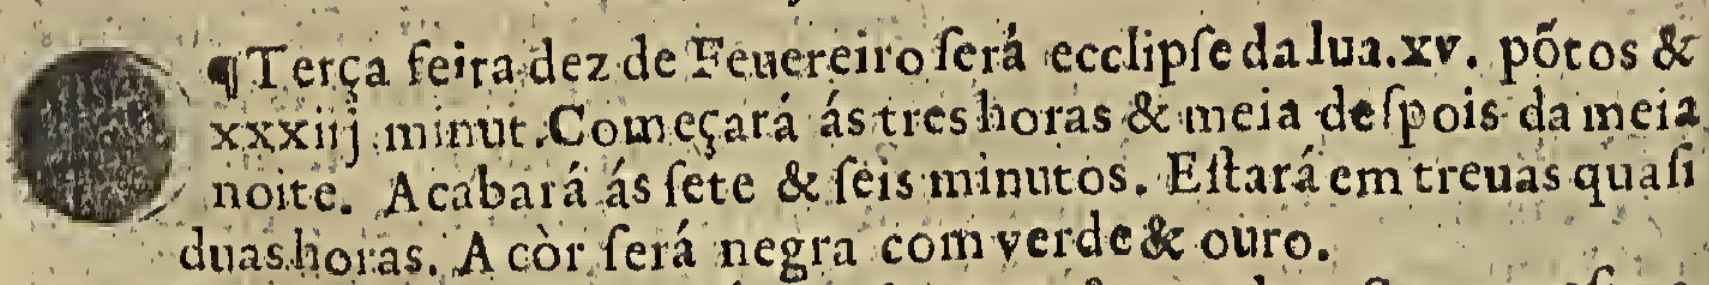 ¶Terça feira dez de Feuereiro ſerá ecclipſe da lua.xv. põtos &
xxxiiij minut.Começará ás tres horas & meia deſpois da meia
noite. Acabará ás ſete & ſeis minutos. Eſtará em treuas quaſi
duas horas. A còr ſerá negra com verde & ouro.